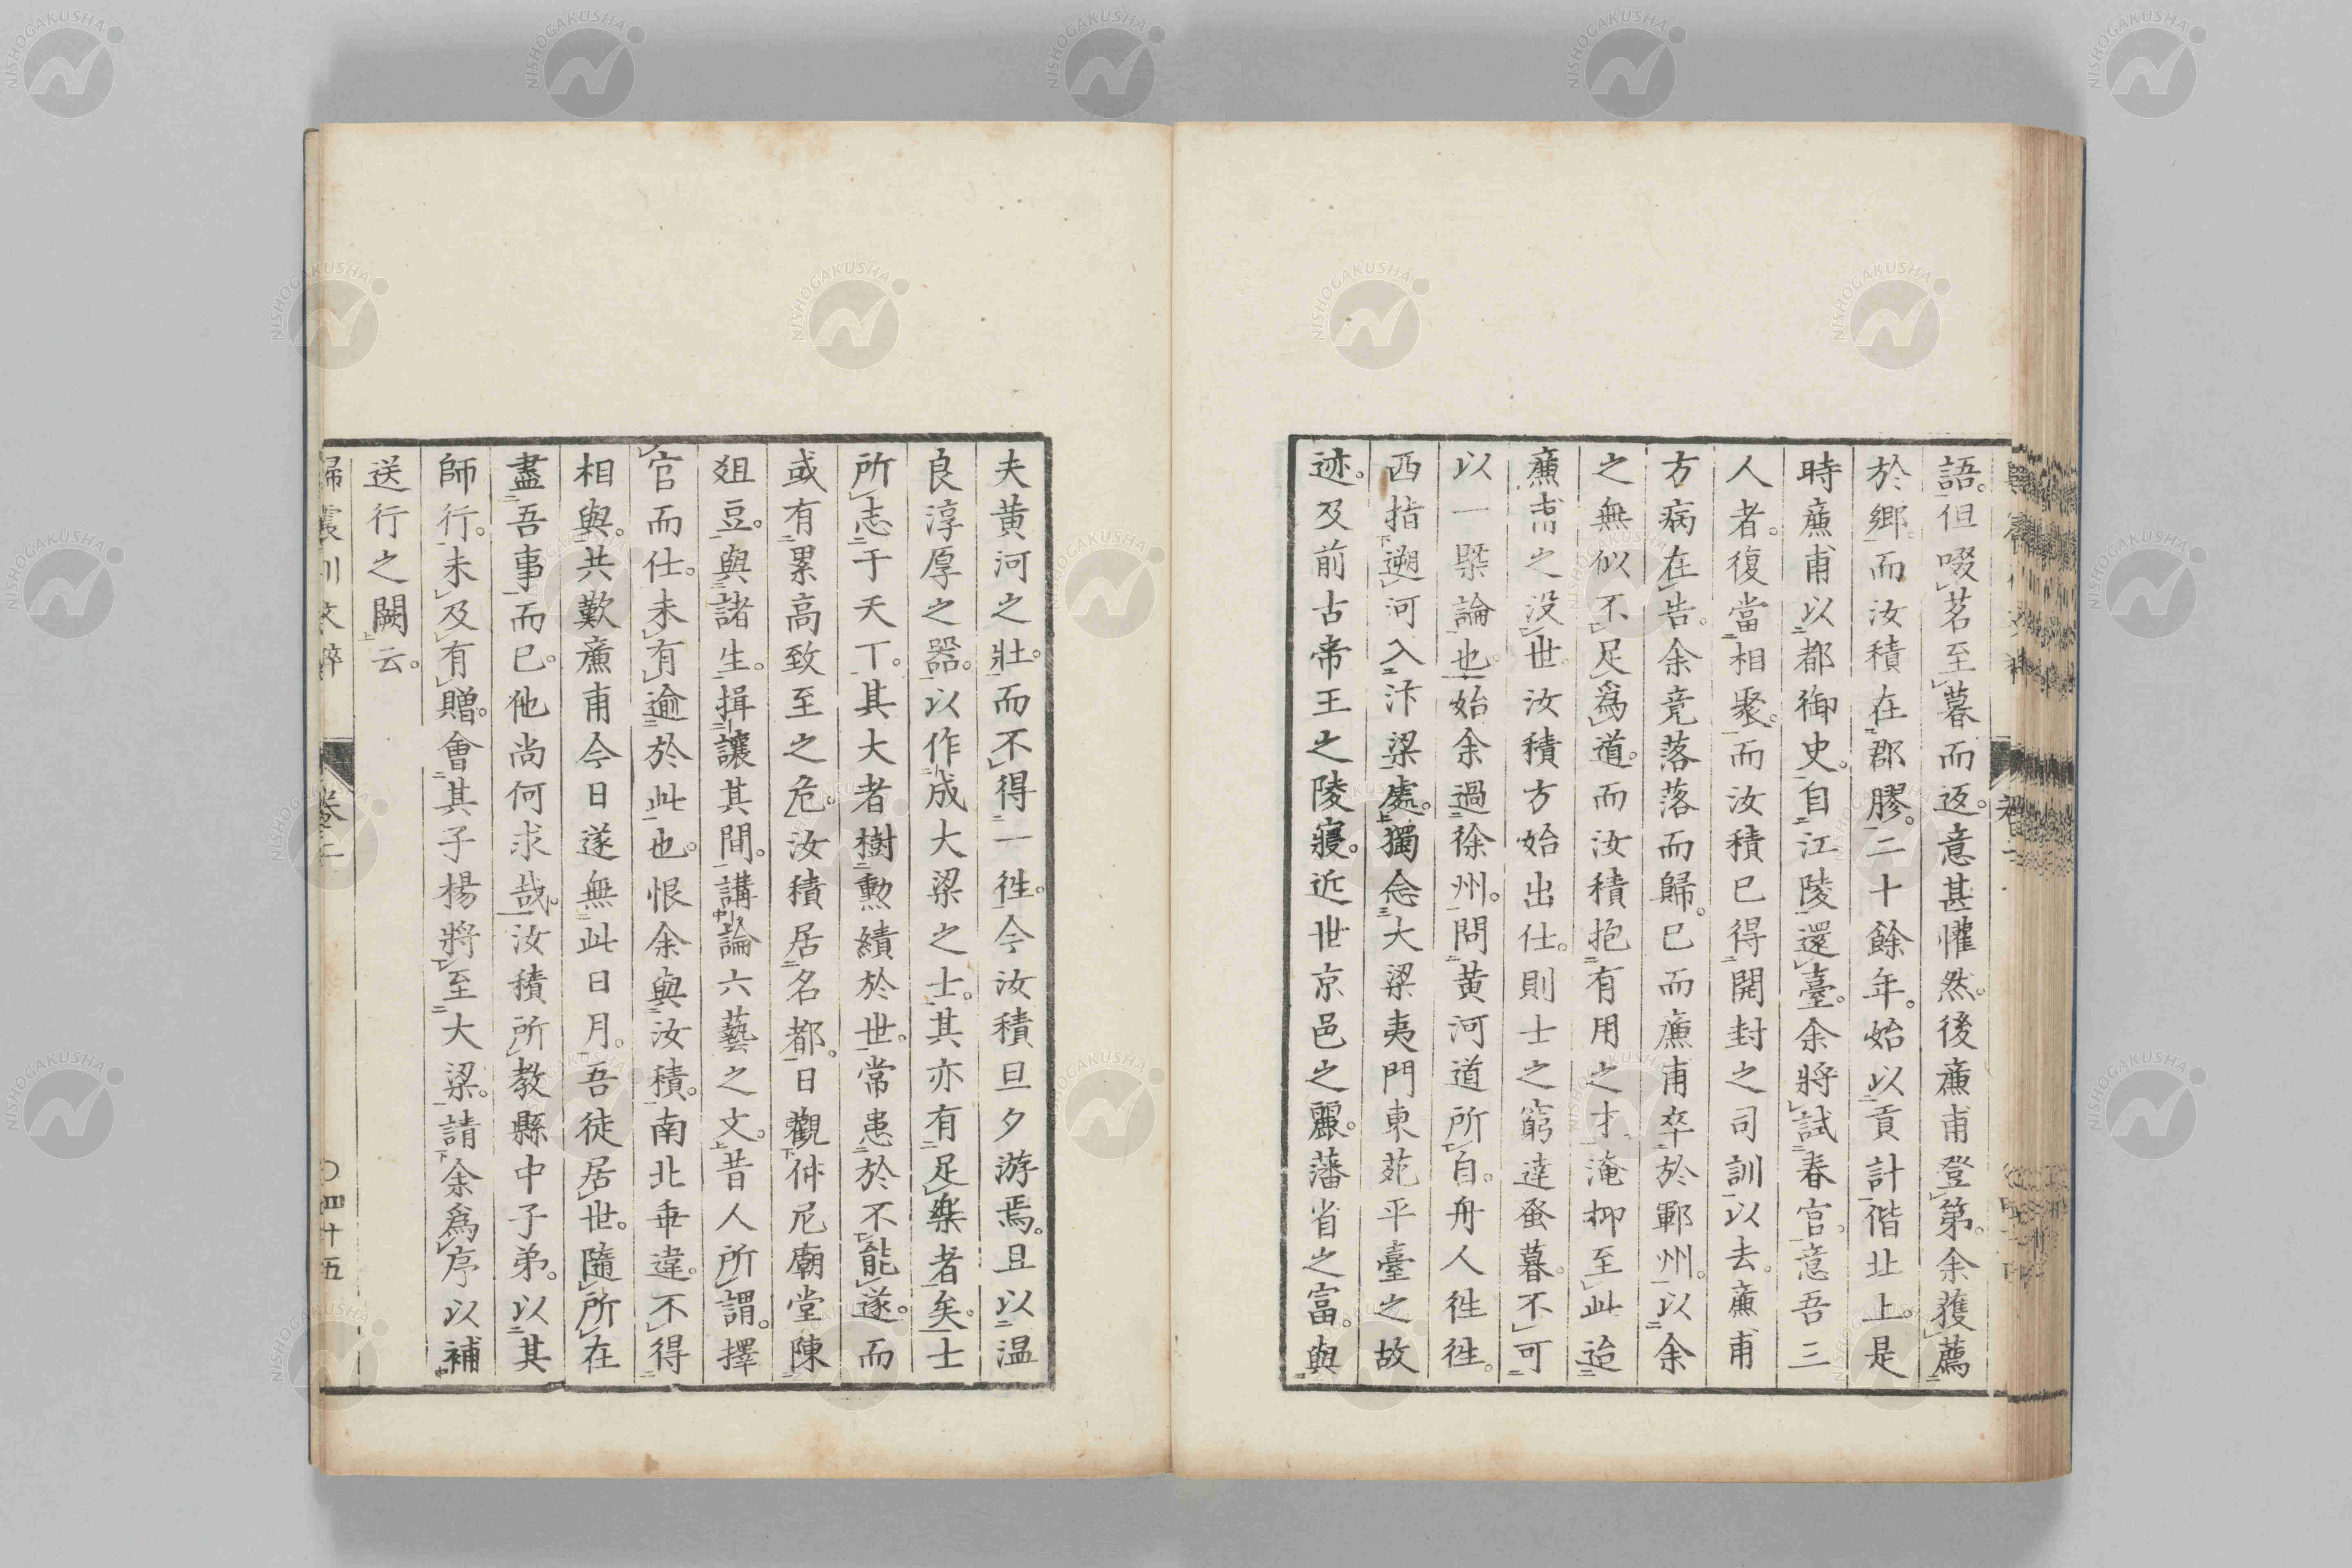 語。但啜茗至暮而返。意甚懽然。後㢘甫登第。余獲薦
於鄉。而汝積在郡膠。二十餘年。始以貢計偕北上。是
時㢘甫以都御史。自江陵還臺。余將試春官。意吾三
人者。復當相聚。而汝積已得開封之司訓以去。㢘甫
方病在告。余竟落落而歸。已而㢘甫卒於鄆州。以余
之無似不足爲道。而汝積抱有用之才。淹抑至此迨
㢘甫之没世。汝積方始出仕。則士之窮達蚤暮。不可
以一槩論也。始余過徐州。問黄河道所自。舟人徃徃。
西指遡河入汴梁處。獨念大梁夷門東苑平臺之故
迹。及前古帝王之陵寢。近世京邑之麗。藩省之富。與
夫黄河之壯。而不得一徃。今汝積旦夕游焉。且以温
良淳厚之器。以作成大梁之士。其亦有足樂者矣。士
所志于天下。其大者樹勲績於世。常患於不能遂。而
或有累高致至之危。汝積居名都。日觀仲尼廟堂陳
俎豆。與諸生。揖讓其間。講論六藝之文。昔人所謂。擇
官而仕。未有逾於此也。恨余與汝積。南北乖違。不得
相與。共歎㢘甫今日遂無此日月。吾徒居世。隨所在
盡吾事而已。他尚何求哉。汝積所教縣中子弟。以其
師行。未及有贈。會其子楊將至大梁。請余爲序以補
送行之闕云。
歸震川文粹
卷二
〇四十五
NISHOGAKUSHA